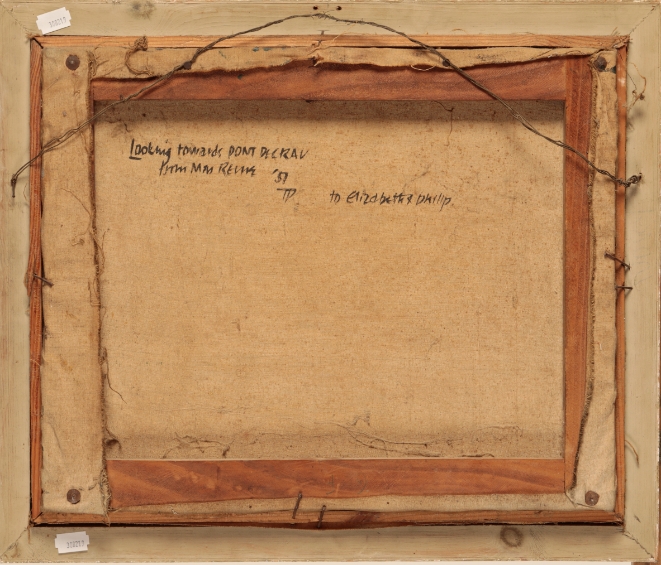 Looking towards PONT DECRAU
from Mas
'59
TD. to Elizabeth & philip.